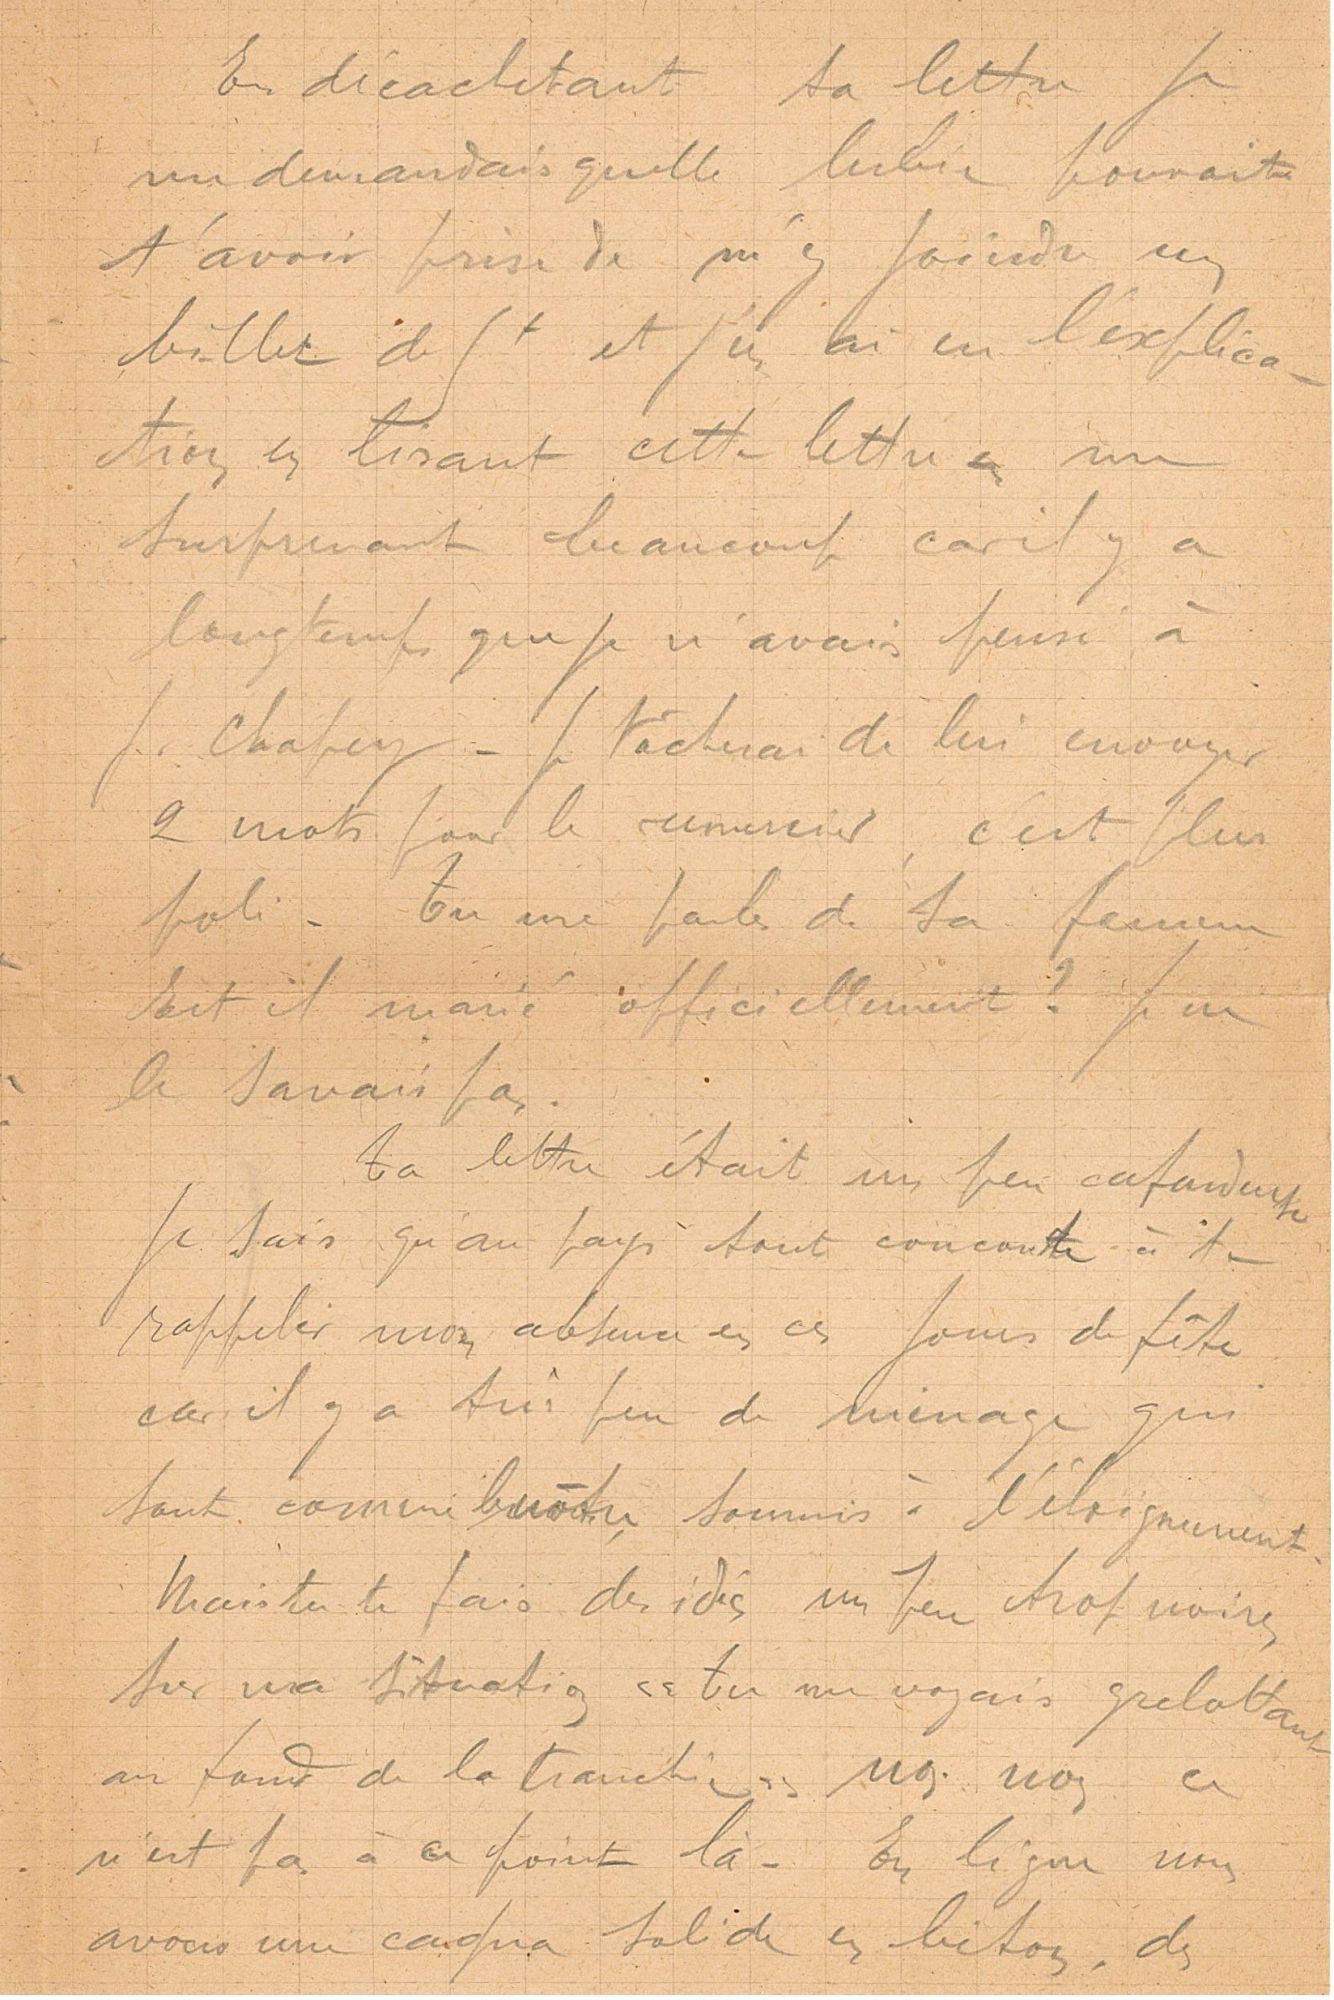 En décachetant ta lettre je
me demandais quelle lubie pouvait
t'avoir prise de m'y joindre un
billet de 5f et j'en ai eu l'explica-
tion en lisant cette lettre en me
surprenant beaucoup car il y a
longtemps que je n'avais pensé à
Chapey - je tâcherai de lui envoyer
2 mots pour le remercier, c'est plus
poli - Tu me parles de sa femme
Est il marié officiellement? Je ne
le savais pas.
Ta lettre était un peu cafardeuse
Je sais qu'au pays tout concourt à te
rappeler mon absence en ces jours de fête
car il y a très peu de ménage qui
sont comme le nôtre, soumis à l'éloignement.
Mais tu te fais des idées un peu trop noires
sur ma situation et tu me voyais grelottant
au fond de la tranchée non non ce
n'est pas à ce point là - En ligne nous
avons une cagna solide en béton, des